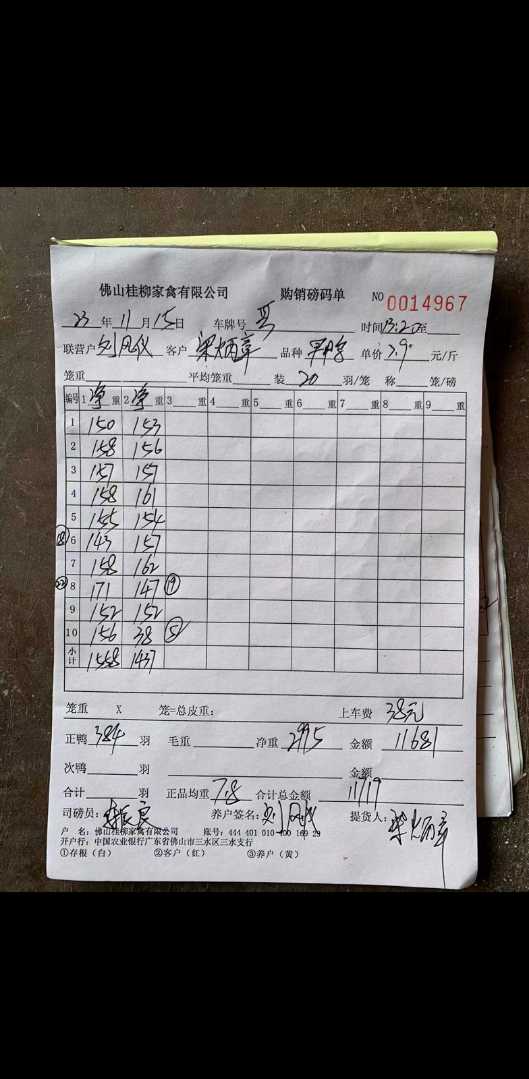 佛山桂柳家禽有限公司 购销磅码单 NO 0014967
23年11月15日 车牌号 时间13:20至
联营户 刘风仪 客户 梁炳章 品种 单价3.9 元/斤
笼重 平均笼重 装 20 羽/笼 称 笼/磅
编号 1 净重 2 净重 3 重 4 重 5 重 6 重 7 重 8 重 9 重
1 150 153
2 158 156
3 157 157
4 158 161
5 155 154
⑱ 6 143 157
7 158 162
㉒ 8 171 147 ⑲
9 152 152
10 156 38 ⑤
小计 1558 1437
笼重 X 笼=总皮重: 上车费 38元
正鸭 384 羽 毛重 净重 2995 金额 11681
次鸭 羽 金额
合计 羽 正品均重 7.8 合计总金额 11719
司磅员: 养户签名: 刘风仪 提货人: 梁炳章
户 名: 佛山桂柳家禽有限公司 账号: 444 401 010 400 169 29
开户行: 中国农业银行广东省佛山市三水区三水支行
①存根(白) ②客户(红) ③养户(黄)